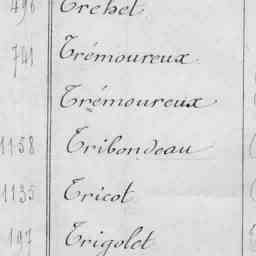 496 Trebel
741 Trémoureux
Trémoureux
1158 Tribondeau
1135 Tricot
197 Trigolet